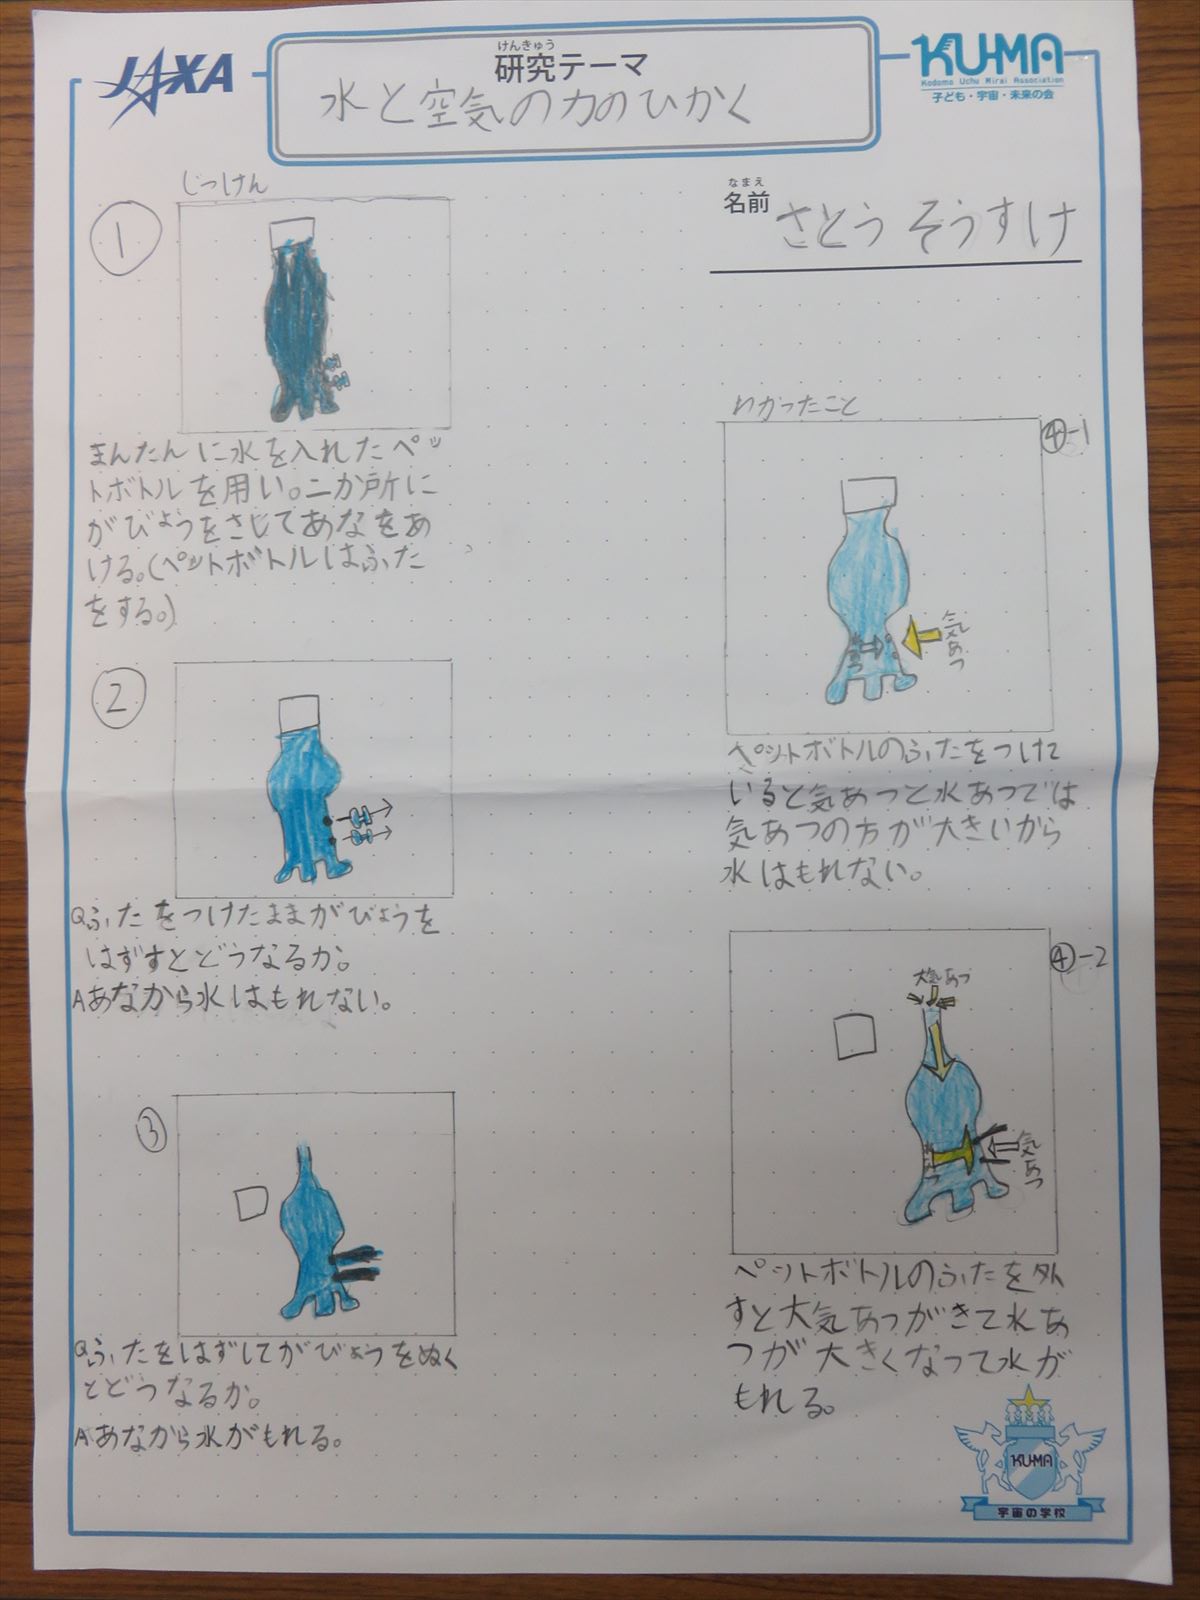 JAXA
けんきゅう
研究テーマ
水と空気の力のひかく
KU-MA
Kodomo Uchu Mirai Association
子ども・宇宙・未来の会
なまえ
名前 さとう そうすけ
じっけん
①
まんたんに水を入れたペッ
トボトルを用い。二か所に
がびょうをさじてあなをあ
ける。(ペットボトルはふた
をする。)
②
Qふたをつけたままがびょうを
はずすとどうなるか。
Aあなから水はもれない。
③
Qふたをはずしてがびょうをぬく
とどうなるか。
Aあなから水がもれる。
わかったこと
④-1
水あつ
気あつ
ペットボトルのふたをつけて
いると気あつと水あつでは
気あつの方が大きいから
水はもれない。
④-2
大気あつ
水あつ
気あつ
ペットボトルのふたを外
すと大気あつがきて水あ
つが大きくなって水が
もれる。
KU-MA
宇宙の学校